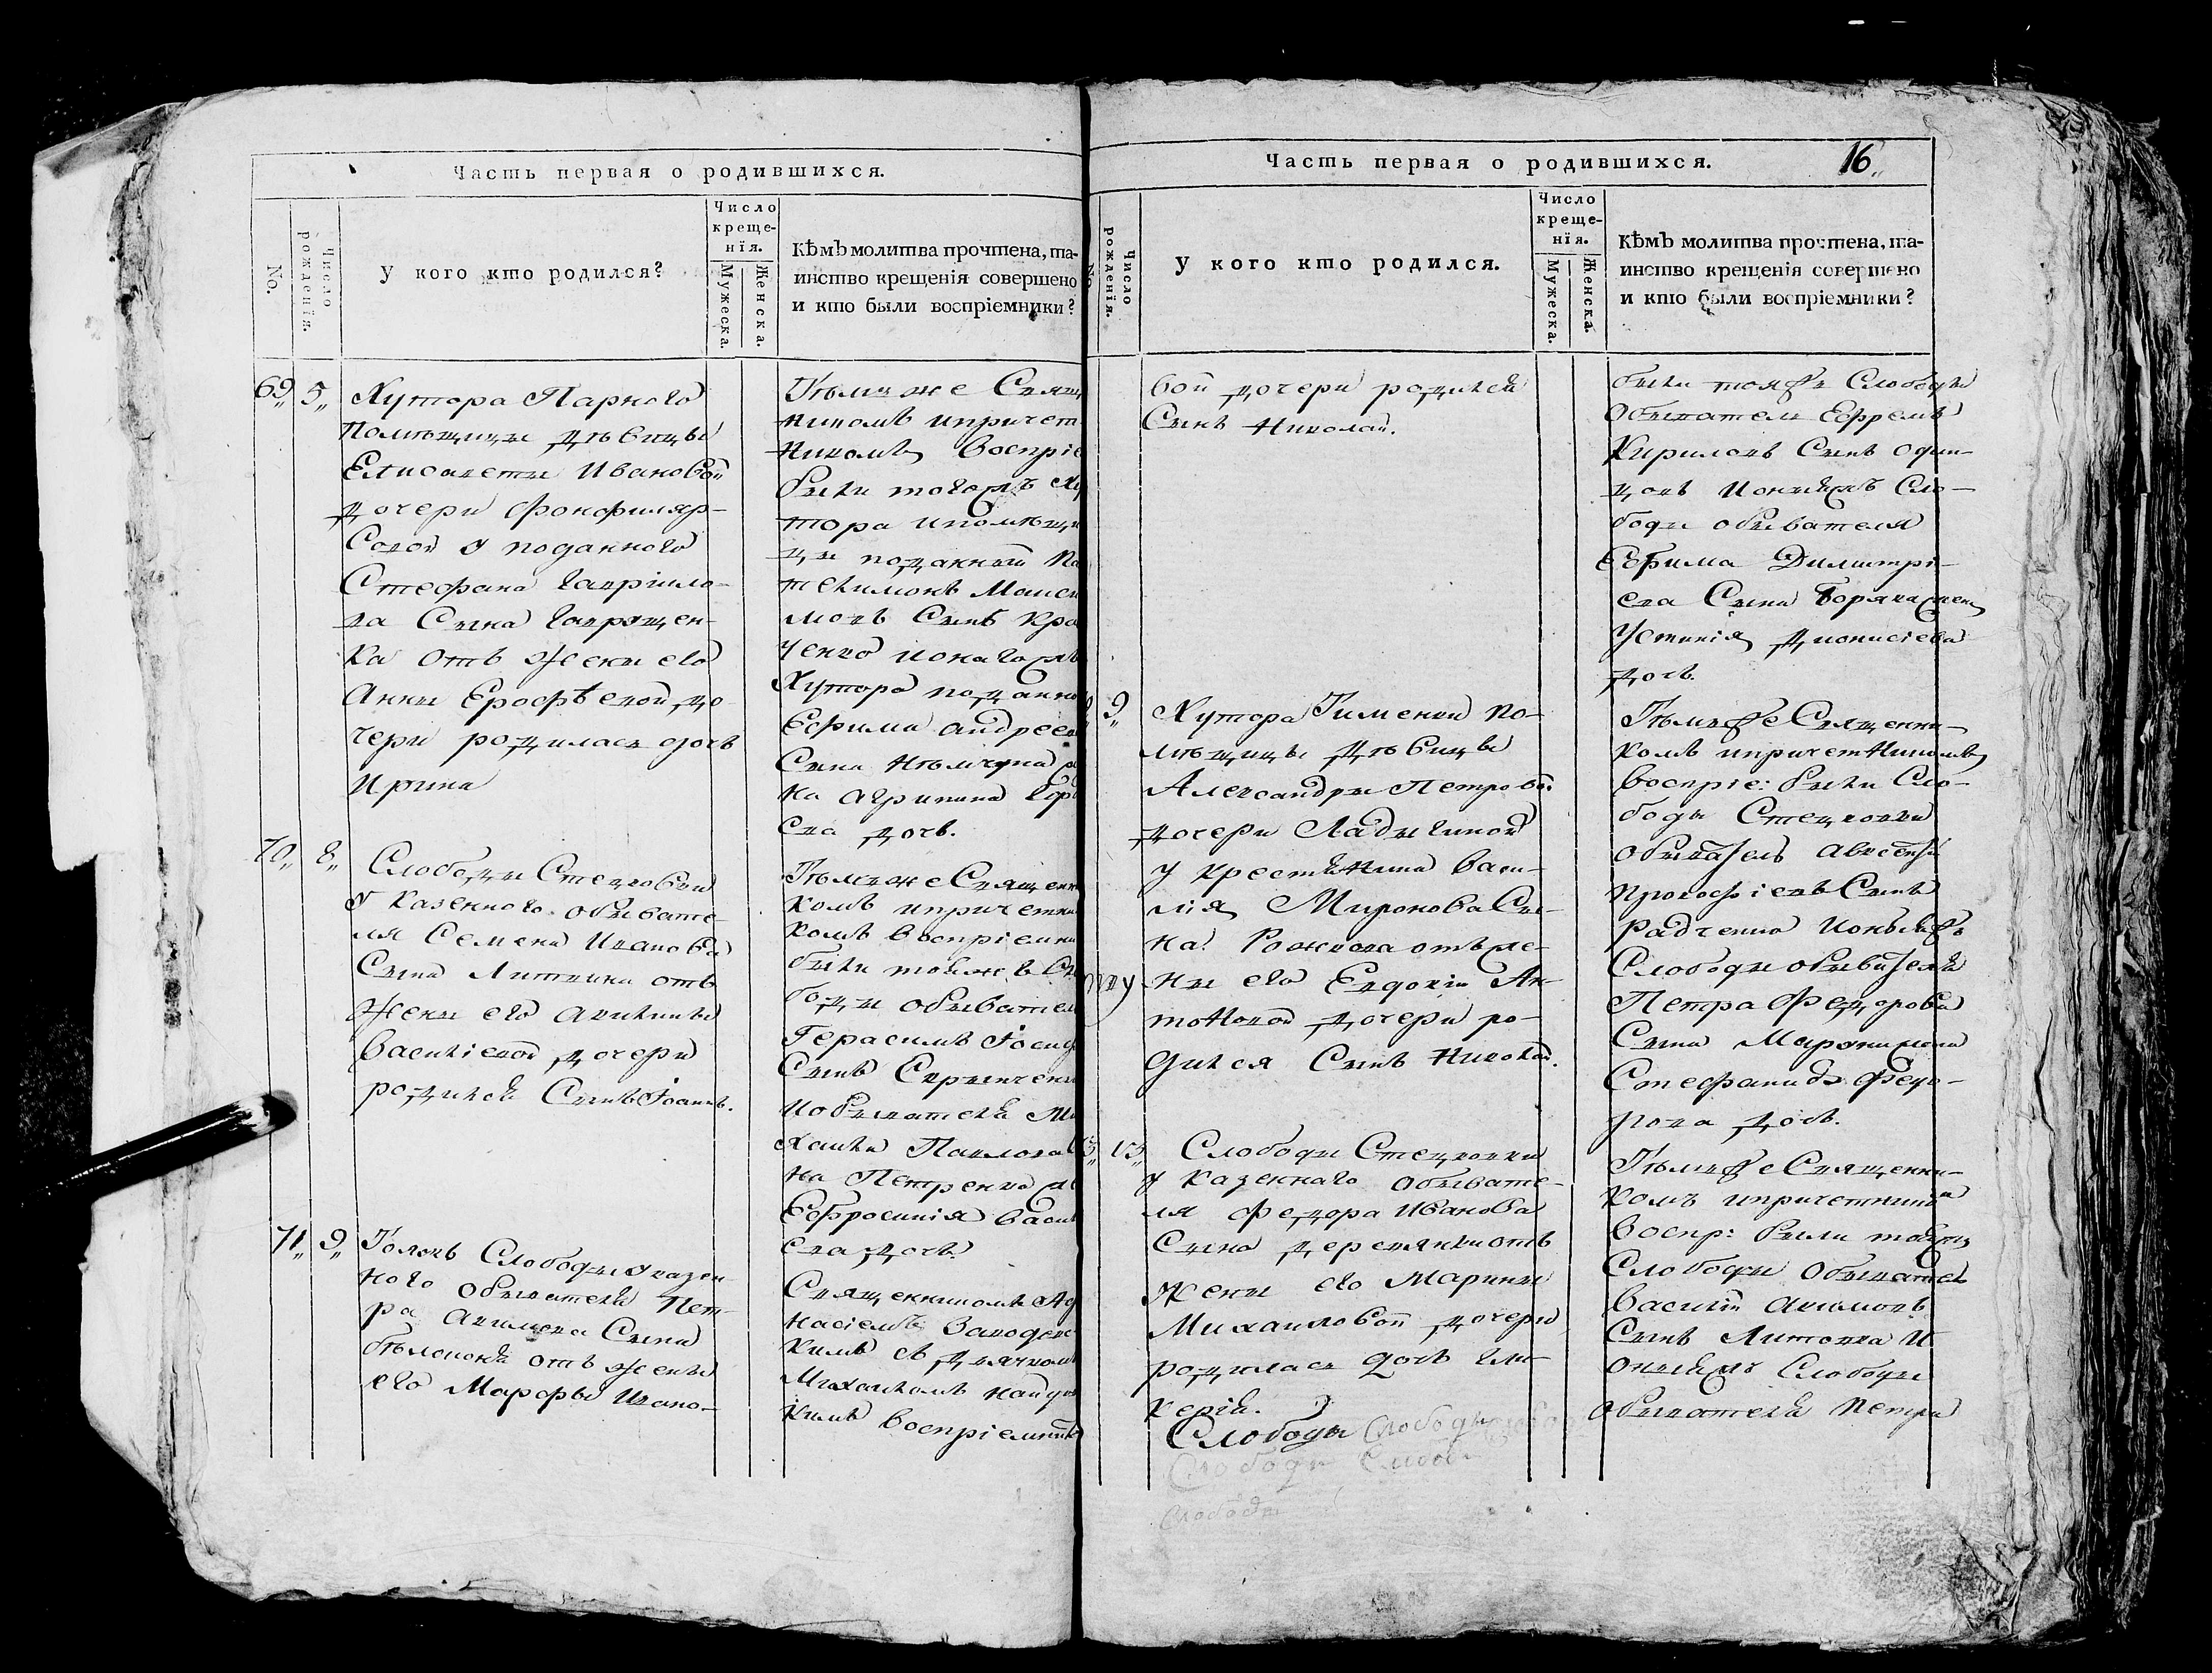 Часть первая о родившихся.
No.
Число рожденія.
У кого кто родился?
Число крещенія.
Мужеска.
Женска.
Кѣмъ молитва прочтена, та-
инство крещенія совершено
и кто были воспріемники?
69 5
Хутора Парного
помѣщицы дѣвицы
Елисаветы Ивановой
дочери
у поданного
Стефана Гавріило-
ва Сына Гаврищен-
ка отъ жены его
Анны Ерофѣевой до-
чери родилась дочь
Ирина
Тѣмже Свящ
никомъ и причет
никомъ воспріе
были тогожъ Ху
тора и помѣщи
цы поданный Па
телимонъ Макси
мовъ Сынъ Кра
ченко и оногожъ
Хутора поданно
Ефима Андреев
Сына
на Агрипина
ева дочь.
70 8
Слободы Стецковки
у казенного обывате-
ля Семена Иванова
Сына Литвина отъ
жены его Акилины
Василіевой дочери
родился Сынъ Іоаннъ.
Тѣмже Священни
комъ и причетни
комъ воспріемни
были тойже Сло
боды обывател
Герасимъ Іосиф
Сынъ
и обывателя Ми
хаила Павлова С
на Петренка
Ефросинія Васил
ева дочь
71 9
Тояжъ Слободы у казен-
ного обывателя Пет-
ра Акимова Сына
отъ жены
его Марфы Ивано-
Священникомъ Афа
насіемъ
кимъ съ дьячкомъ
Михаиломъ
кимъ воспріемник
Часть первая о родившихся.
16
No.
Число рожденія.
У кого кто родился.
Число крещенія.
Мужеска.
Женска.
Кѣмъ молитва прочтена, та-
инство крещенія совершено
и кто были воспріемники?
вой дочери родился
Сынъ Николай.
были тояжъ Слободы
Обыватели Ефремъ
Кириловъ Сынъ Один-
цовъ и онияжъ Сло-
боды обывателя
Ефима Димитрі-
ева Сына жена
Устинія Діонисіева
дочь.
9
Хутора Тименки по-
мѣщицы дѣвицы
Александры Петровой
дочери Ладыгиной
у крестьянина Васи-
лія Миронова Сы-
на Рожкова отъ же-
ны его Евдокіи Ан-
тоновой дочери ро-
дился Сынъ Николай.
Тѣмже Священни-
комъ и причетникомъ
воспріе: были Сло-
боды Стецковки
обыватель Авксентій
Прокофіевъ Сынъ
Радченко и оныяжъ
Слободы обывателя
Петра Федорова
Сына
Стефанида Федо-
рова дочь.
13
Слободы Стецковки
у казеннаго обывате-
ля Федора Иванова
Сына Деревянки отъ
жены его Марины
Михаиловой дочери
родилась дочь Гли-
керія.
Тѣмже Священни-
комъ и причетники
воспр: были тояжъ
Слободы Обыватель
Василій Акимовъ
Сынъ Литовка и
онияжъ Слободы
обывателя Петра
Слободы Слободы
Слободы Слобо
Слободы